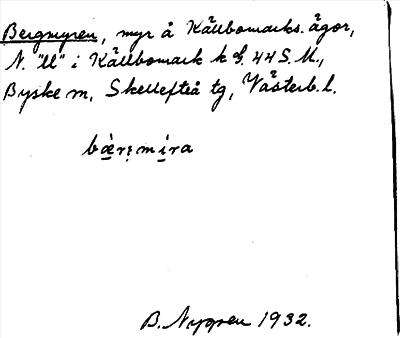 Bergmyren, myr å Källbomarks. ägor,
N. "ll" i Källbomark k bl. 44 S. M.,
Byske m, Skellefteå tg, Västerb. l.
bæ̀r mira
B. Nygren 1932.